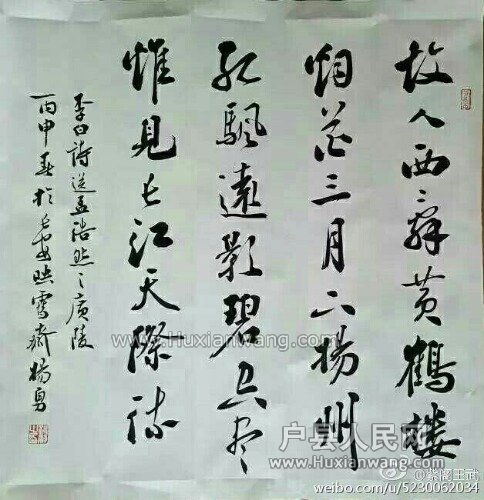 故人西辭黄鶴楼
烟花三月下揚州
孤颿遠影碧空尽
惟見长江天際流
李白詩送孟浩然之廣陵
丙申春於长安映雪斋楊勇
www.Huxianwang.com
户县人民网
www.Huxianwang.com
@紫阁王武
weibo.com/u/5230062034